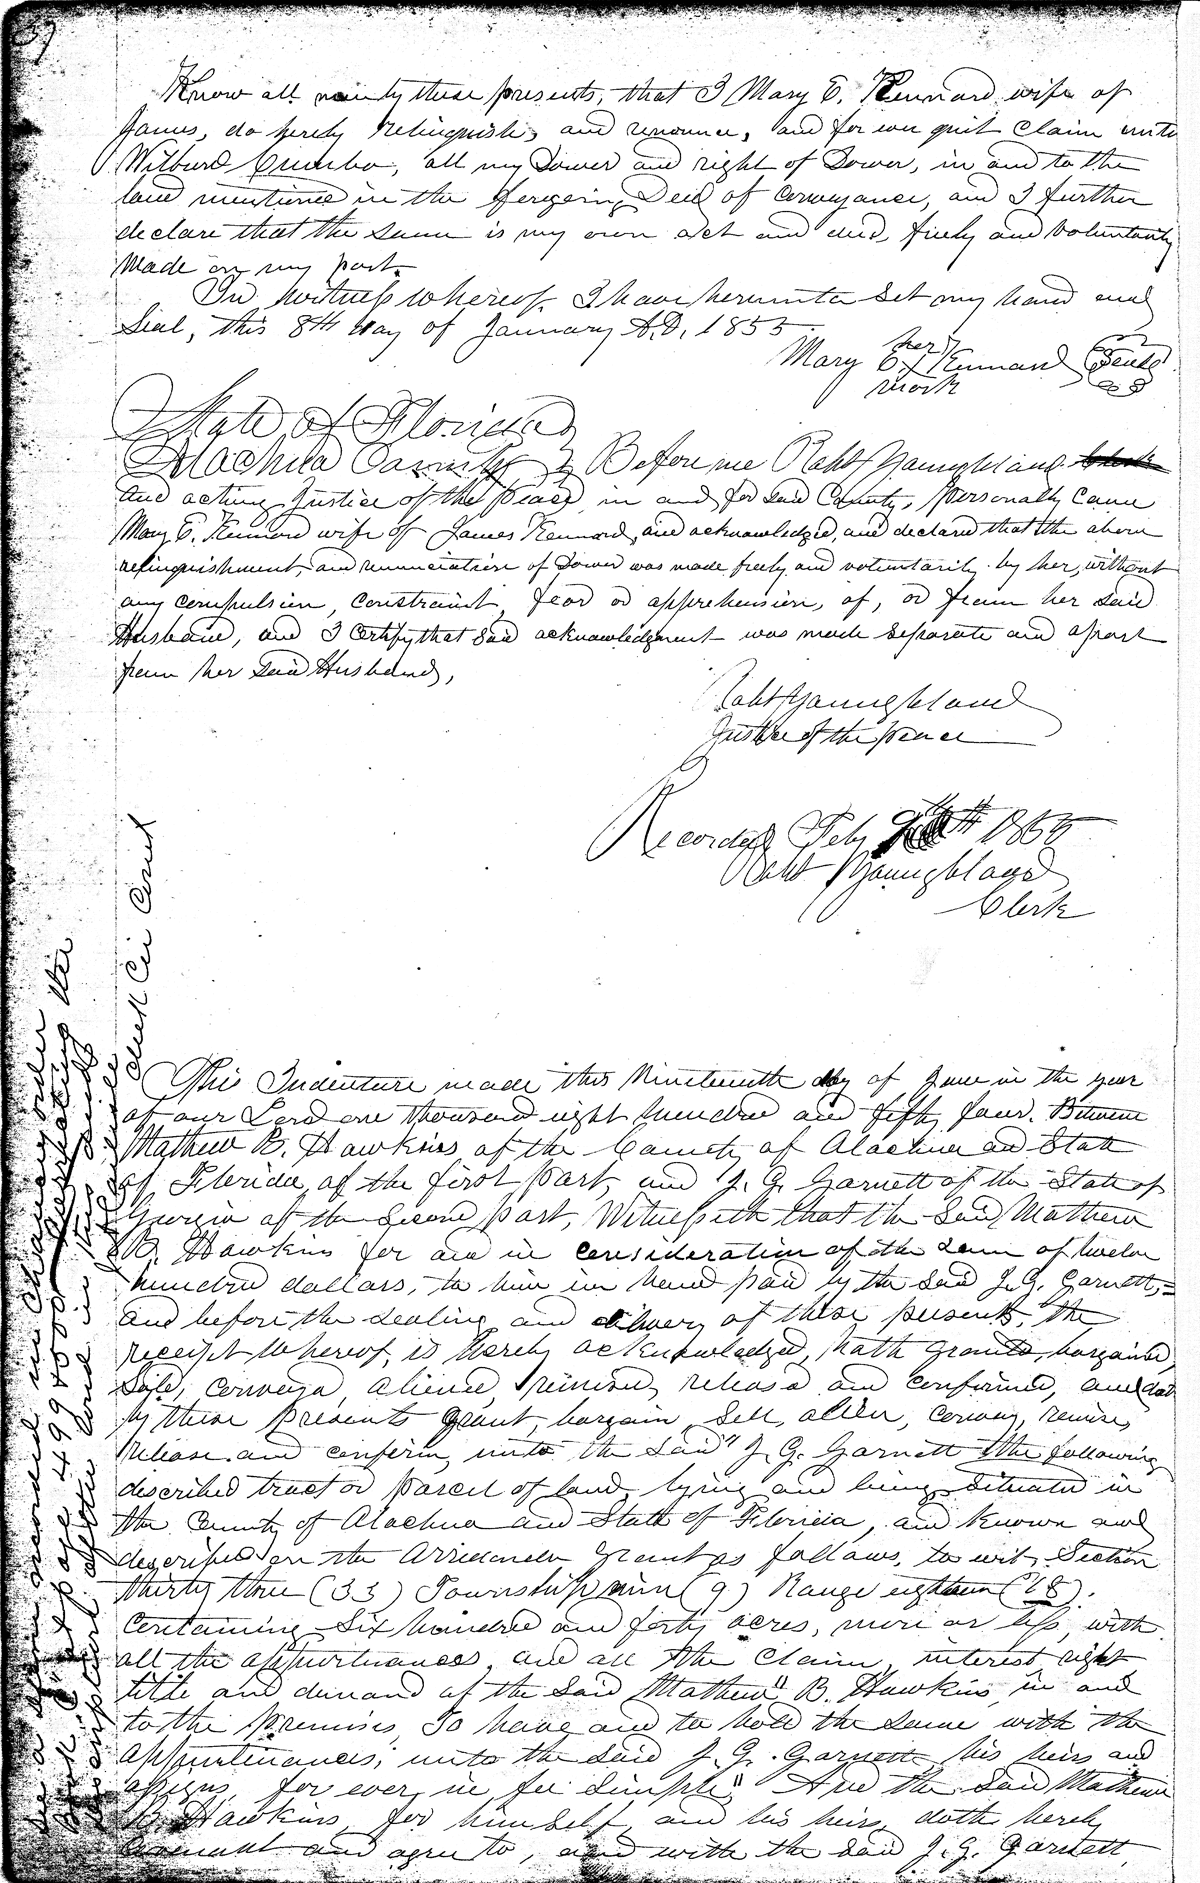 Know all men by these presents, that I Mary E. Kennard wife of
James, do hereby relinquish, and renounce, and for ever quit claim unto
Wilburd Crumbo, all my Dower and right of Dower, in and to the
land mentioned in the foregoing Deed of conveyance, and I further
declare that the same is my own act and deed, freely and voluntarily
Made on my part.
In witness whereof I have hereunto set my hand and
Seal, this 8th day of January A.D, 1855
her
Mary E. X Kennard Seal
mark
State of Florida
Alachua County } Before me Robt Youngblood
and acting Justice of the peace in and for said County, personally came
Mary E. Kennard wife of James Kennard, and acknowledged, and declared that the above
relinquishment, and renunciation of Dower was made freely and voluntarily by her, without
any compulsion, constraint, fear or apprehension, of, or from her said
Husband, and I certify that said acknowledgment was made separate and apart
from her said Husband,
Robt Youngblood
Justice of the peace
Recorded Feby 1855
Robt Youngblood
Clerk
This Indenture made this Nineteenth day of June in the year
of our Lord one thousand eight hundred and fifty four. Between
Mathew B. Hawkins of the County of Alachua and State
of Florida, of the first part, and J. G. Garnett of the State of
Georgia of the Second part, Witnesseth that the Said Mathew
B. Hawkins for and in consideration of the sum of twelve
hundred dollars, to him in hand paid by the said J. G. Garnett,=
and before the sealing and delivery of these presents, the
receipt whereof, is hereby acknowledged, hath granted, bargained
Sold, conveyed, aliened, remised, released and confirmed, and doth
by these presents grant, bargain, Sell, alien, convey, remise,
release and confirm, unto the said J. G. Garnett the following
described tract or parcel of land, lying and being situated in
the County of Alachua and State of Florida, and known and
described on the Arredondo Grant as follows, to wit, Section
thirty three (33) Township nine (9) Range eighteen (18).
Containing Six hundred and forty acres, more or less, with
all the appurtenances, and all the claim, interest right
title and demand of the said Mathew B. Hawkins, in and
to the premises, To have and to hold the same with the
appurtenances, unto the said J. G. Garnett his heirs and
assigns, for ever, in fee simple" And the said Mathew
B. Hawkins, for himself, and his heirs, doth hereby
Covenant and agree to, and with the said J. G. Garnett,
See a deed recorded in Chancery order
Book page 499 to 500 the
description of the land in this deed
Clerk Cir Court